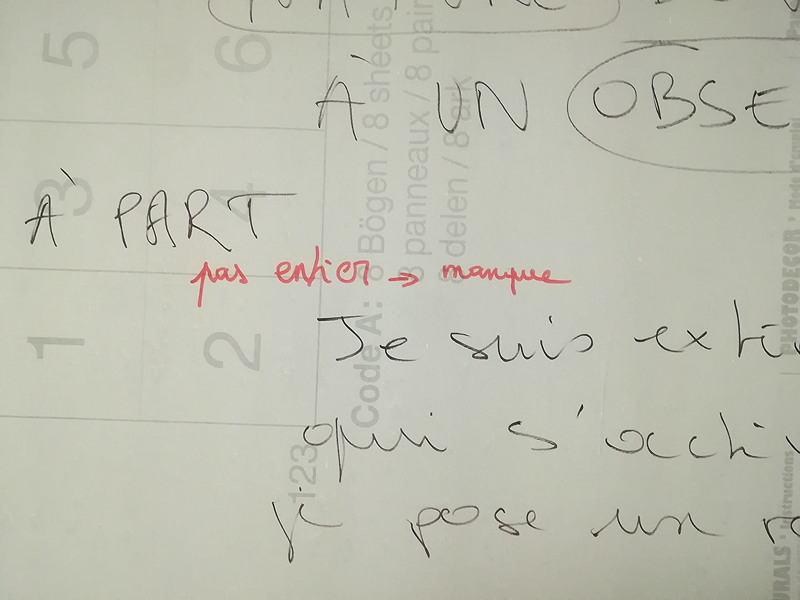 À UN OBSE
À PART
pas entier → manque
Je suis exti
qui s'activ
je pose un r
5
6
3
4
1
2
123
Code A: 8 Bögen / 8 sheets
8 panneaux / 8 pair
8 delen / 8 ark
PHOTODECOR · Mode d'emploi
URALS · Instructions